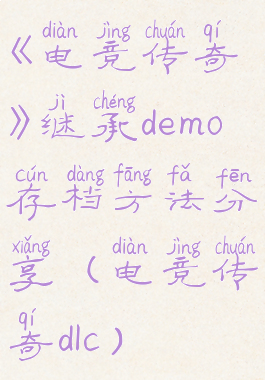 diàn jìng chuán qí
《电竞传奇
jì chéng
》继承demo
cún dàng fāng fǎ fēn
存档方法分
xiǎng diàn jìng chuán
享（电竞传
qí
奇dlc）